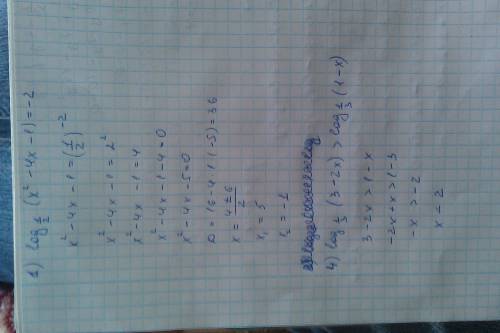 1) log_{1/2} (x² - 4x - 1) = -2
x² - 4x - 1 = (1/2)^{-2}
x² - 4x - 1 = 2²
x² - 4x - 1 = 4
x² - 4x - 1 - 4 = 0
x² - 4x - 5 = 0
D = 16 - 4·1·(-5) = 36
x = (4 ± 6)/2
x₁ = 5
x₂ = -1
4) log_{1/3} (3 - 2x) > log_{1/3} (1 - x)
3 - 2x > 1 - x
-2x + x > 1 - 3
-x > -2
x < 2